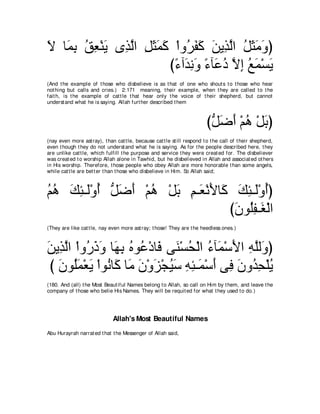 (وَمَثَلُ الَّذِينَ كَفَرُواْ كَمَثَلِ الَّذِى يَنْعِقُ بِمَا لاَ
يَسْمَعُ إِلاَّ دُعَآءً وَنِدَآءً)
(And the example of those who disbelieve is as that of one who shouts to those who hear
nothing but calls and cries.) 2:171 meaning, their example, when they are called to the
faith, is the example of cattle that hear only the voice of their shepherd, but cannot
understand what he is saying. Allah further described them
(بَلْ هُمْ أَضَلُّ)
(nay even more astray), than cattle, because cattle still respond to the call of their shepherd,
even though they do not understand what he is saying. As for the people described here, they
are unlike cattle, which fulfill the purpose and service they were created for. The disbeliever
was created to worship Allah alone in Tawhid, but he disbelieved in Allah and associated others
in His worship. Therefore, those people who obey Allah are more honorable than some angels,
while cattle are better than those who disbelieve in Him. So Allah said;
(أُوْلَـئِكَ كَالأَنْعَـمِ بَلْ هُمْ أَضَلُّ أُوْلَـئِكَ هُمُ
الْغَـفِلُونَ)
(They are like cattle, nay even more astray; those! They are the heedless ones.)
(وَللَّهِ الأَسْمَآءُ الْحُسْنَى فَادْعُوهُ بِهَا وَذَرُواْ الَّذِينَ
يُلْحِدُونَ فِى أَسْمَـئِهِ سَيُجْزَوْنَ مَا كَانُواْ يَعْمَلُونَ )
(180. And (all) the Most Beautiful Names belong to Allah, so call on Him by them, and leave the
company of those who belie His Names. They will be requited for what they used to do.)
Allah's Most Beautiful Names
Abu Hurayrah narrated that the Messenger of Allah said,